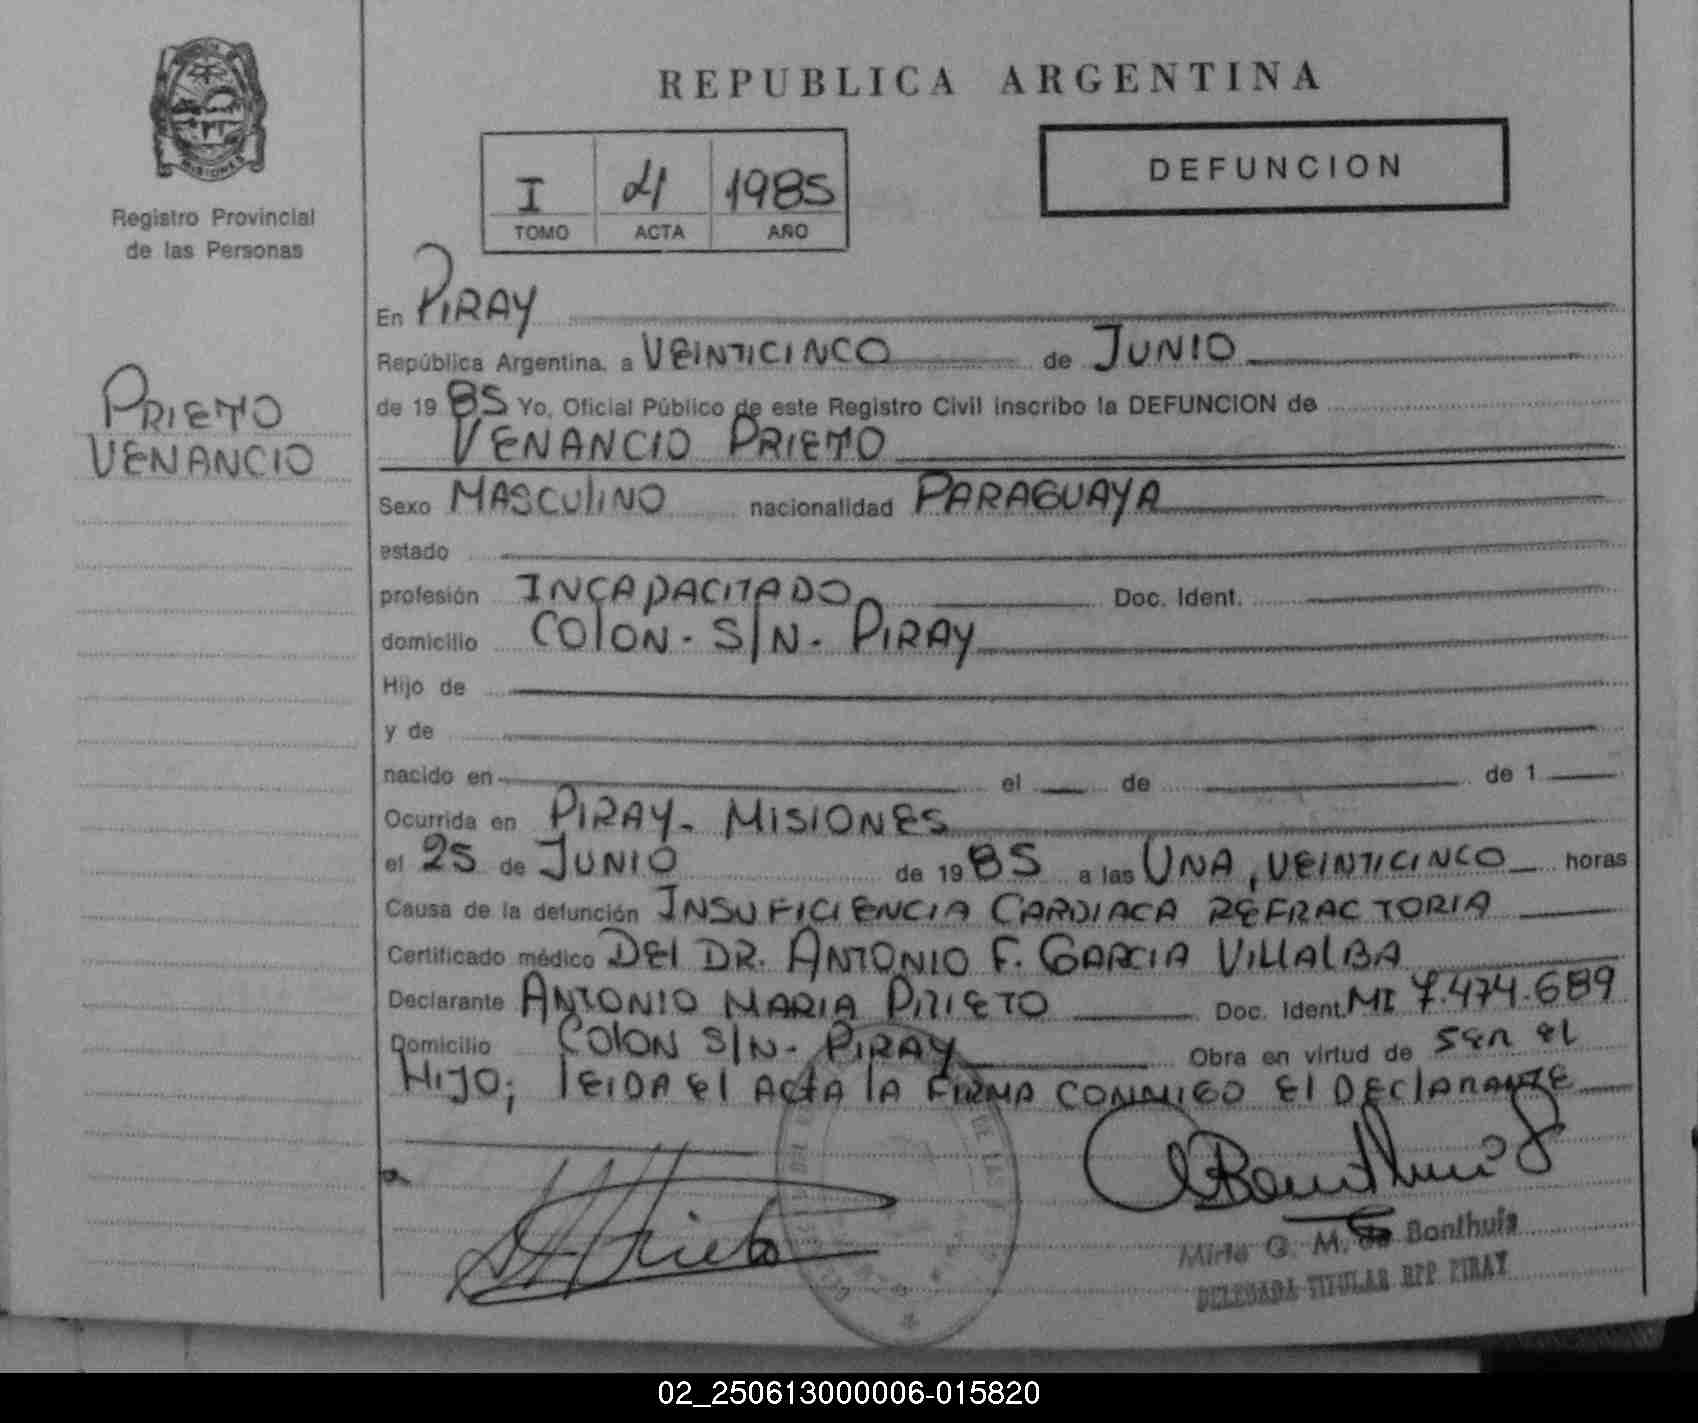 REPUBLICA ARGENTINA
DEFUNCION
I 4 1985
TOMO ACTA AÑO
MISIONES
Registro Provincial
de las Personas
PRIETO
VENANCIO
En PIRAY
República Argentina, a VEINTICINCO de JUNIO
de 19 85 Yo, Oficial Público de este Registro Civil inscribo la DEFUNCION de
VENANCIO PRIETO
Sexo MASCULINO nacionalidad PARAGUAYA
estado
profesión INCAPACITADO Doc. Ident.
domicilio COLON - S/N - PIRAY
Hijo de
y de
nacido en el de de 1
Ocurrida en PIRAY - MISIONES
el 25 de JUNIO de 19 85 a las UNA, VEINTICINCO horas
Causa de la defunción INSUFICIENCIA CARDIACA REFRACTORIA
Certificado médico DEL DR. ANTONIO F. GARCIA VILLALBA
Declarante ANTONIO MARIA PRIETO Doc. Ident. MI 7.474.689
Domicilio COLON S/N - PIRAY Obra en virtud de SER EL
HIJO; LEIDA EL ACTA LA FIRMA CONMIGO EL DECLARANTE
Prieto
Mirta G. M. de Bonthuis
DELEGADA TITULAR RPP PIRAY
02_250613000006-015820